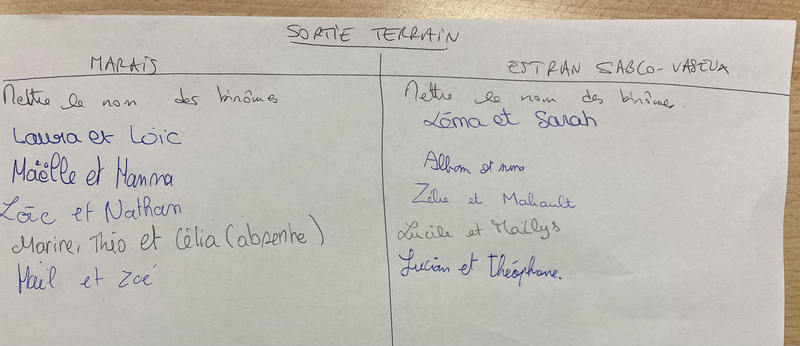 SORTIE TERRAIN
MARAIS
Mettre le nom des binômes
Laura et Loïc
Maëlle et Hanna
Loïc et Nathan
Marine, Théo et Célia (absente)
Maïl et Zoé
ESTRAN SABLO-VASEUX
Mettre le nom des binômes.
Léma et Sarah
Alban et
Zélie et Mahault
Lucile et Maïlys
Lucian et Théophane.